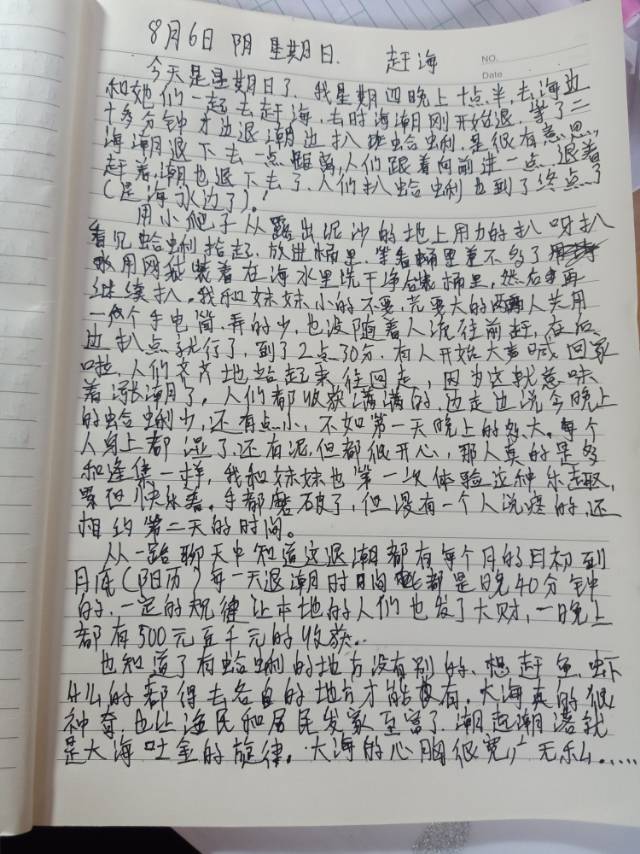 8月6日 阴 星期日. 赶海
NO.
Date
今天是星期日了，我星期四晚上十点半去海边
和她们一起去赶海，去时海潮刚开始退，等了二
十多分钟才边退潮边扒蛤蜊，是很有意思，
海潮退下去一点距离，人们跟着向前进一点，退着
赶着，潮也退下去了，人们扒蛤蜊也到了终点了
（是海水边了）.
用小爬子从露出泥沙的地上用力的扒呀扒
看见蛤蜊拾起，放进桶里，等着桶里差不多了
用网袋装着在海水里洗干净装桶里，然后再
继续扒。我和妹妹小的不要，光要大的两人共用
一个手电筒，弄的少，也没随着人流往前赶，在后
边扒点就行了，到了2点30分，有人开始大声喊回家
啦，人们齐齐地站起来往回走，因为这就意味
着涨潮了，人们都收获满满的，边走边说今晚上
的蛤蜊少，还有点小，不如第一天晚上的多大。每个
人身上都湿了还有泥，但都很开心，那人真的是多
和逢集一样，我和妹妹也第一次体验这种乐趣，
累但快乐着。手都磨破了，但没有一个人说疼的还
相约第二天的时间。
从一路聊天中知道这退潮都有每个月的月初到
月底（阳历）每一天退潮时间都是晚40分钟
的，一定的规律让本地的人们也发了大财，一晚上
都有500元至千元的收获..
也知道了有蛤蜊的地方没有别的，想赶鱼，虾
什么的都得去各自的地方才能有，大海真的很
神奇，也让渔民和居民发家至富了，潮起潮落就
是大海吐金的旋律。大海的心胸很宽广无私......